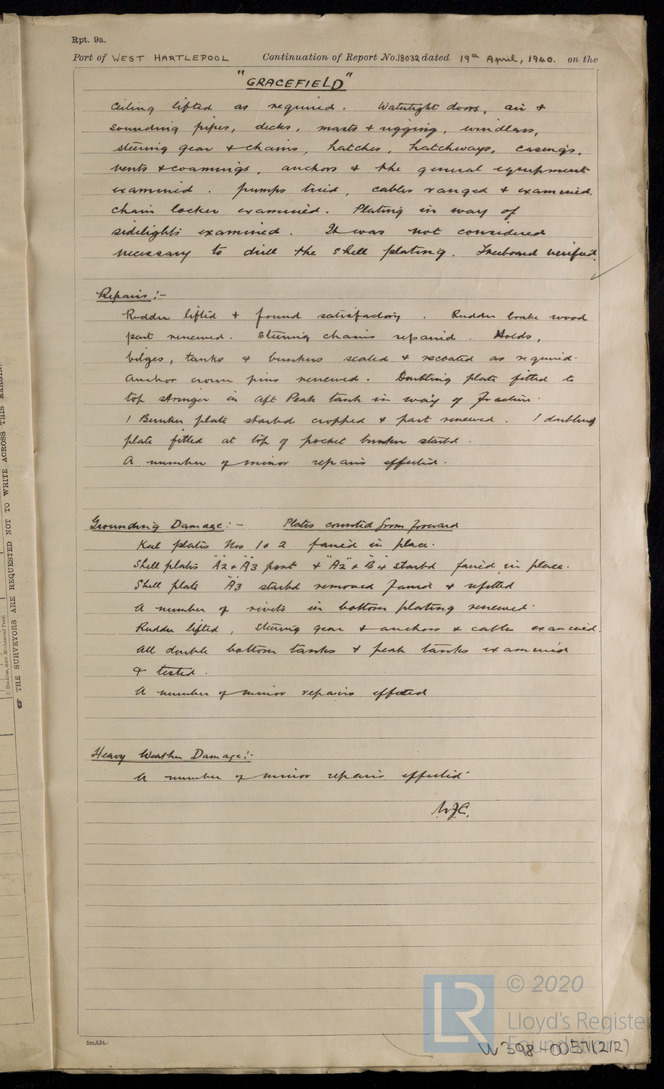 Rpt. 9a.
Port of WEST HARTLEPOOL Continuation of Report No. 18032 dated 19th April, 1940. on the
"GRACEFIELD"
Ceiling lifted as required. Watertight doors, air &
sounding pipes, decks, masts & rigging, windlass,
steering gear & chains, hatches, hatchways, casings,
vents & coamings, anchors & the general equipment
examined. pumps tried, cables ranged & examined
chain locker examined. Plating in way of
sidelights examined. It was not considered
necessary to drill the shell plating. Freeboard verified.
Repairs:-
Rudder lifted & found satisfactory. Rudder brake wood
part renewed. Steering chains repaired. Holds,
bilges, tanks & bunkers scaled & recoated as required.
Anchor crown pins renewed. Doubling plate fitted to
top stringer in aft Peak tank in way of fracture.
1 Bunker plate starbd cropped & part renewed. 1 doubling
plate fitted at top of pocket bunker starbd.
A number of minor repairs effected.
Grounding Damage:- Plates counted from forward
Keel plates Nos 1 & 2 faired in place.
Shell plates "A2 & "A3 port & "A2" & "B4 starbd faired in place.
Shell plate "A3 starbd removed faired & refitted
A number of rivets in bottom plating renewed.
Rudder lifted, steering gear & anchors & cables examined.
All double bottom tanks & peak tanks examined
& tested.
A number of minor repairs effected
Heavy Weather Damage:-
A number of minor repairs effected.
W.J.C.
THE SURVEYORS ARE REQUESTED NOT TO WRITE ACROSS THIS MARGIN.
© 2020
LR Lloyd's Register
Foundation
W398-0057(2/2)